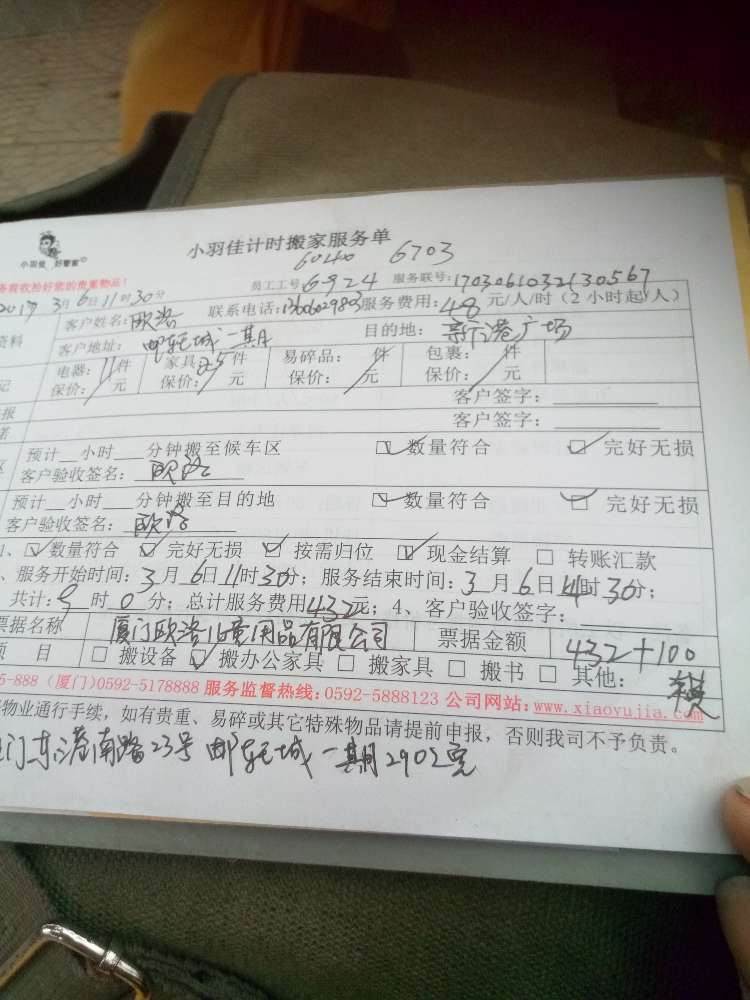 小羽佳 好管家
小羽佳计时搬家服务单
6040 6703
务前收拾好您的贵重物品!
员工工号:6924 服务联号:1703061032130567
2017 3月6日11时30分 联系电话:13606029803 服务费用:48元/人/时(2小时起/人)
资料 客户姓名:欧洛
客户地址: 邮轮城一期 目的地: 新港广场
电器:11件 家具25件 易碎品: 件 包裹: 件
记 保价: 元 保价: 元 保价: 元 保价: 元
报 客户签字:
诺 客户签字:
区 预计 小时 分钟搬至候车区 ☑数量符合 ☑完好无损
客户验收签名:欧洛
预计 小时 分钟搬至目的地 ☑数量符合 ☑完好无损
客户验收签名:欧洛
1、☑数量符合 ☑完好无损 ☑按需归位 ☑现金结算 □转账汇款
、服务开始时间:3月6日11时30分;服务结束时间:3月6日14时30分;
共计:9时0分;总计服务费用432元;4、客户验收签字:
票据名称 厦门欧洛儿童用品有限公司 票据金额 432+100
项 目 □搬设备 ☑搬办公家具 □搬家具 □搬书 □其他:
5-888 (厦门)0592-5178888 服务监督热线:0592-5888123 公司网站:www.xiaoyujia.com
物业通行手续,如有贵重、易碎或其它特殊物品请提前申报,否则我司不予负责。
门东港南路23号 邮轮城一期 290